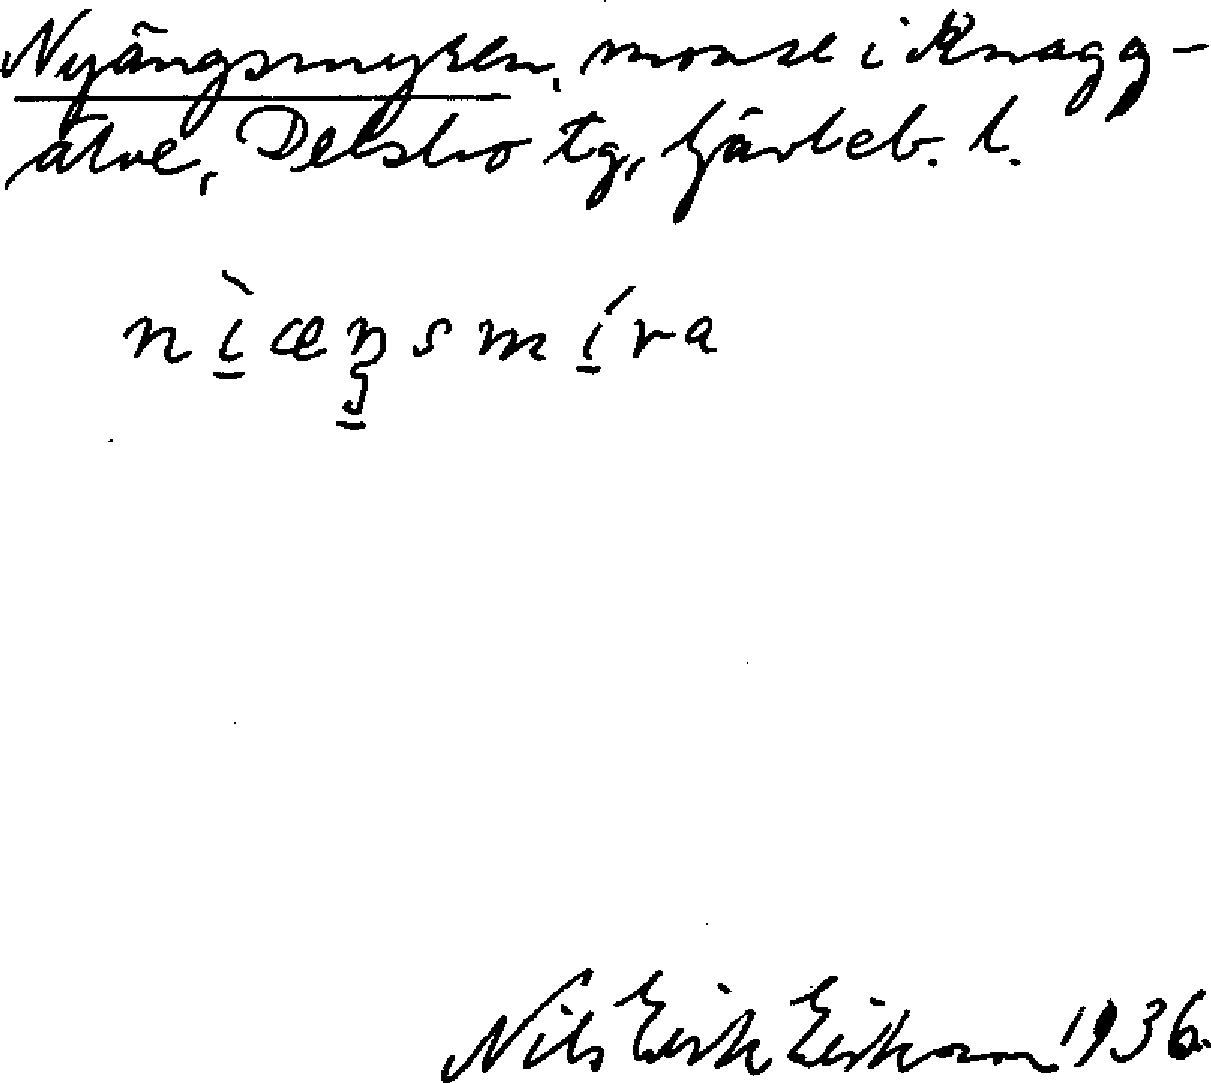 Nyängsmyren, mosse i Knagg-
älve, Delsbo tg, Gävleb. l.
nìæŋsmíra
Nils Erik Erikson 1936.